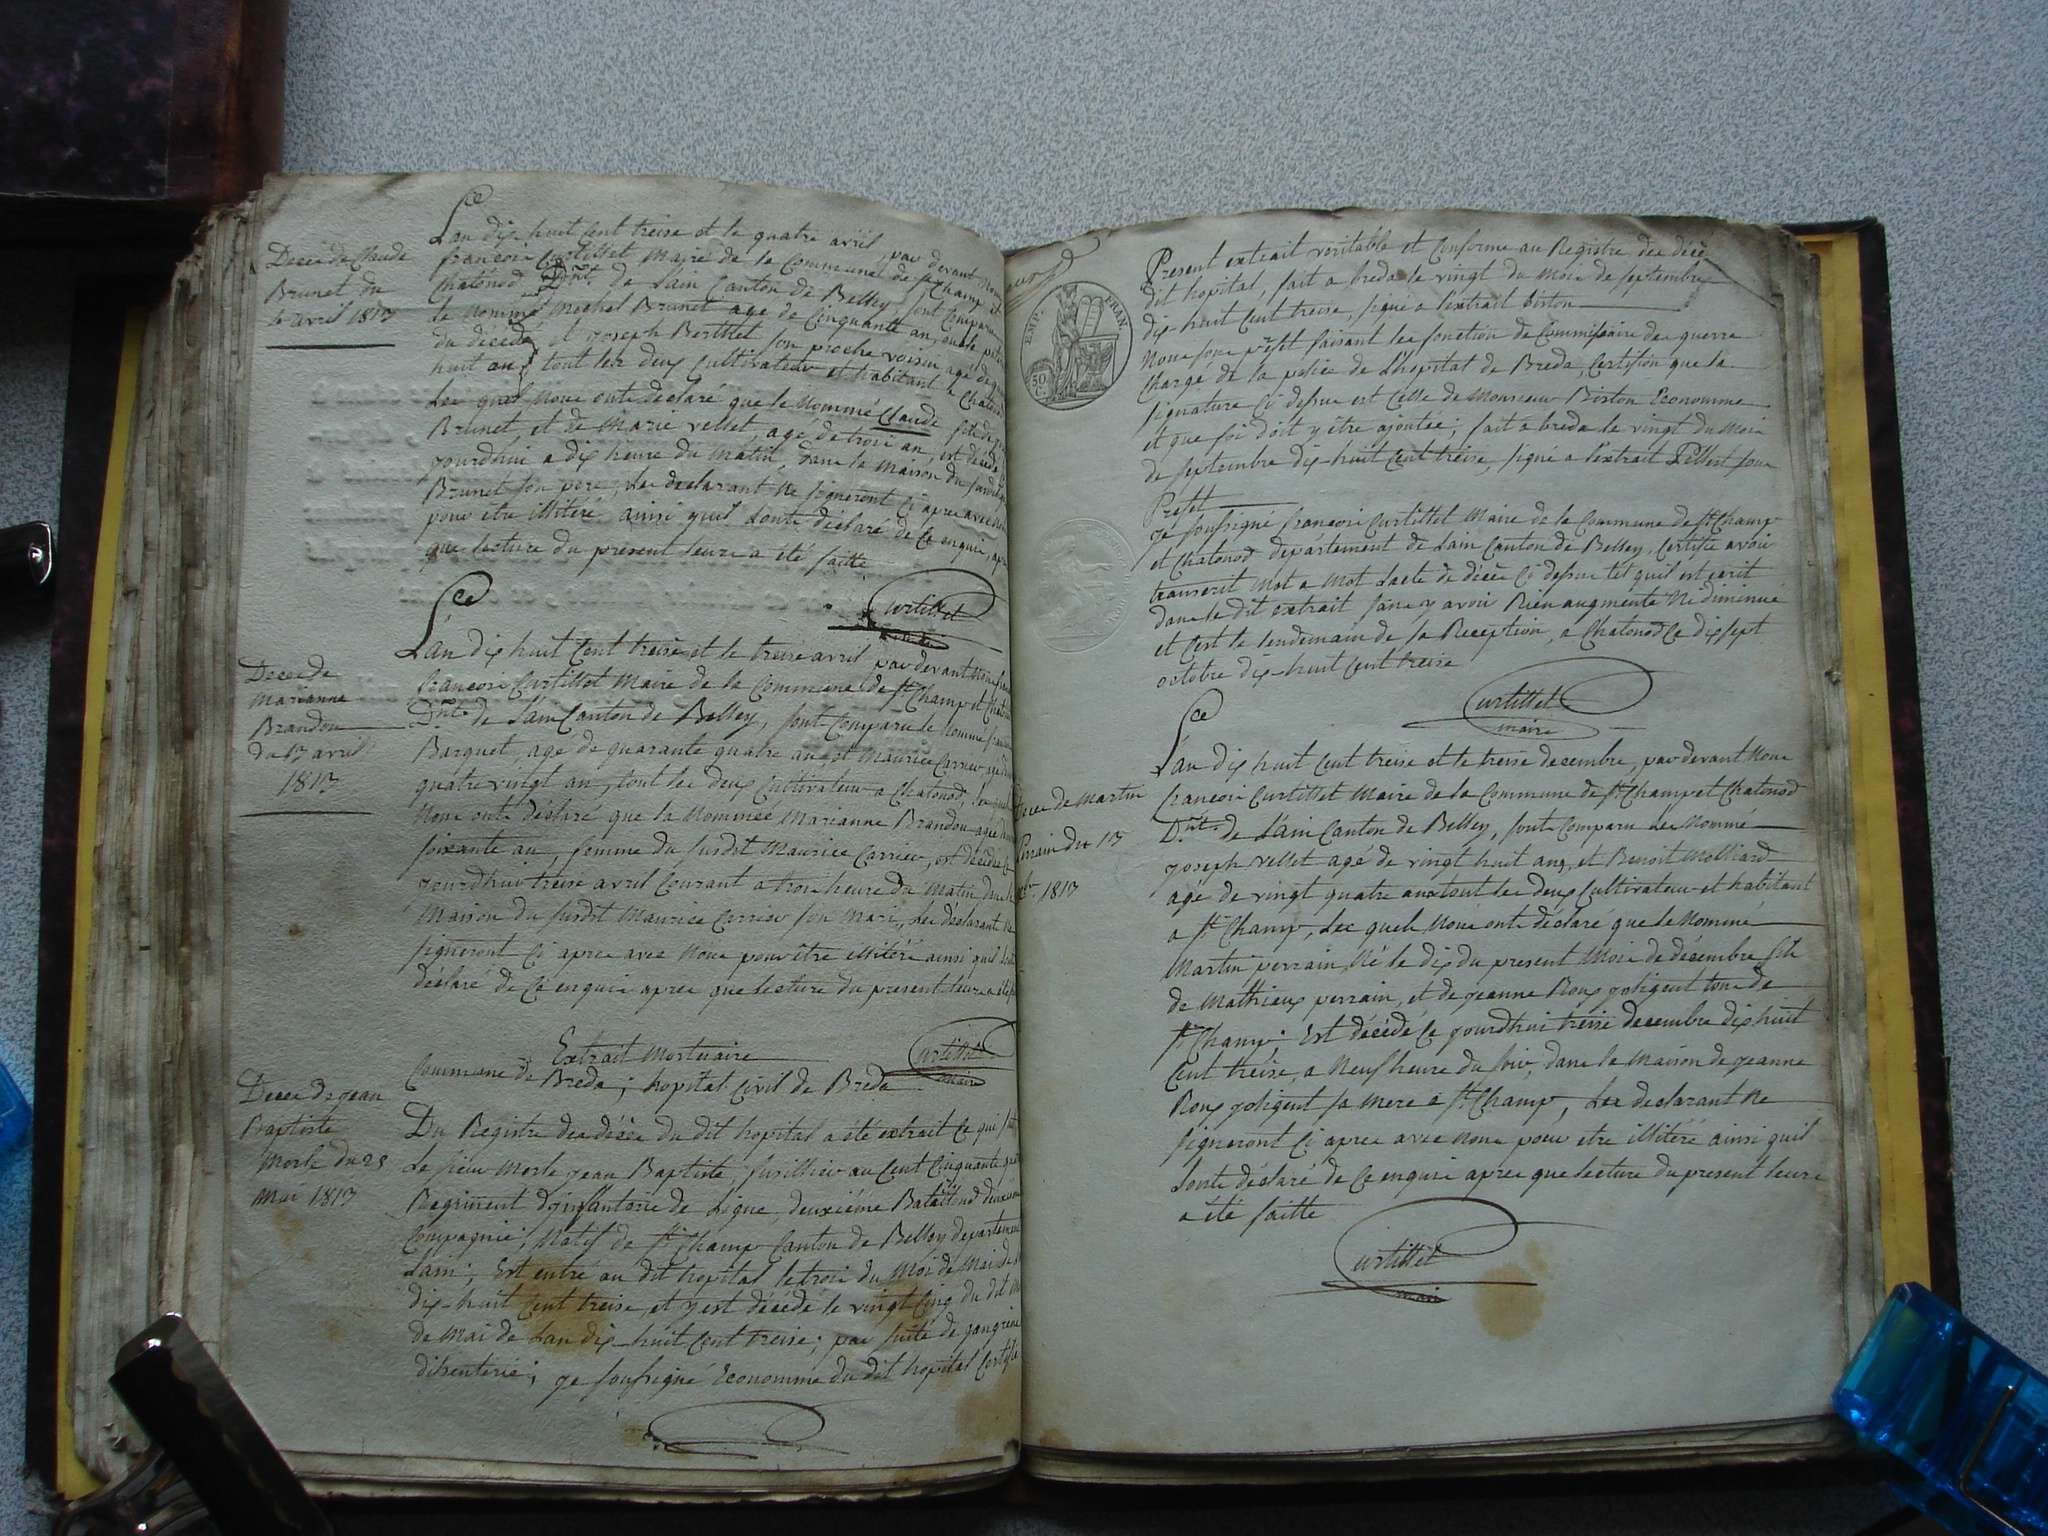 Decee de Claude
Brunet du
4 avril 1813
Ce
L'an dix huit Cent treise et le quatre avril, par devant nous
francois Curtillet Maire de la Commune de St Champ et
Chatonod Dmt de Lain Canton de Belley, sont Comparu
le Nommé Michel Brunet agé de Cinquante an, oncle
du décédé et joseph Berthet son proche voisin agé de
huit an, tout les deux Cultivateur et habitant a Chatonod
Les quel Nous ont déclaré que le Nommé Claude fils de
Brunet, et de Marie vellet, agé de trois an, est décédé
jourdhui a dix heure du Matin, dans la Maison du susdit
Brunet son pere, Les declarant Ne signeront Ci apres avec Nous
pour être illitéré ainsi quil Lonte déclaré de Ce enquis, apres
que lecture du present leure a été faitte
Curtillet
maire
Decee de
Marianne
Brandon
du 13 avril
1813
Ce
L'an dix huit Cent treise et le treise avril par devant Nous
francois Curtillet Maire de la Commune de St Champ et Chatonod
Dmt de L'ain Canton de Belley, sont Comparu le Nommé
Barquet, agé de quarante quatre an, et Maurice Carrier, agé
quatre vingt an, tout les deux Cultivateur a Chatonod, les quel
Nous onte déclaré que la Nommée Marianne Brandon agée
soixante an, femme du susdit Maurice Carrier, est decédée Ce
jourdhui treise avril Courant a trois heure du Matin dans la
Maison du susdit Maurice Carrier son Mari, Les déclarant Ne
signeront Ci apres avec Nous pour être illitéré ainsi quil Lonte
déclaré de Ce enquis apres que lecture du present leure a été
Curtillet
maire
Extrait Mortuaire
Commune de Breda; hopital Civil de Breda
Decee de jean
Baptiste
Morle du 25
Mai 1813
Du Registre des décès du dit hopital a été extrait Ce qui suit
Le sieur Morle jean Baptiste, fusillier au Cent Cinquante
Regiment d'infantorie de Ligne, deuxiéme Bataillond deuxiéme
Compagnie, Natif de St Champ Canton de Belley departement
Lain; Est entré au dit hopital le trois du Moi de Mai de
dix-huit Cent treise, et y est décédé le vingt Cinq du dit
de Mai de Lan dix-huit Cent treise; par suite de gangrene
disenterie; je soussigné Econome du dit hopital Certifie
EMP. FRAN.
50 C.
Present extrait veritable et Conforme au Registre des décè
dit hopital, fait a breda le vingt du Mois de septembre
dix huit Cent treise, signé a l'extrait Birton
Nous sous préfet faisant les fonction de Commissaire des guerre
Chargé de la police de L'hopital de Breda, Certifion que la
signature Ci dessus est Celle de Monsieur Birton Econome
et que foi doit y être ajoutée; fait a breda le vingt du Mois
de septembre dix-huit Cent treise, signé a l'extrait sous
Prefet
je soussigné francois Curtillet Maire de la Commune de St Champ
et Chatonod département de Lain Canton de Belley, Certifie avoir
transcrit Mot a Mot Lacte de décès Ci dessus tel quil est ecrit
dans le dit extrait sans y avoir Rien augmenté Ni diminue
et C'est le lendemain de sa Reception, a Chatonod Ce dix sept
octobre dix-huit Cent treise
Curtillet
maire
Decee de Martin
Perrain du 13
xbr 1813
Ce
L'an dix huit Cent treise et le treise decembre, par devant Nous
francois Curtillet Maire de la Commune de St Champ et Chatonod
Dmt de L'ain Canton de Belley, sont Comparu Les Nommé
joseph vellet agé de vingt huit ans, et Benoit Molliard
agé de vingt quatre ans tout les deux Cultivateur et habitant
a St Champ, Les quels Nous onte déclaré que le Nommé
Martin perrain, Né le dix du present Mois de décembre fils
de Mathieux perrain, et de jeanne Roux joligent tous de
St Champ. Est décédé Ce jourdhui treise decembre dix huit
Cent treise, a Neuf heure du soir, dans la Maison de jeanne
Roux joligent sa Mere a St Champ, Les declarant Ne
signeront Ci apres avec Nous pour etre illitéré ainsi quil
Lonte déclaré de Ce enquis apres que lecture du present leure
a été faitte
Curtillet
maire